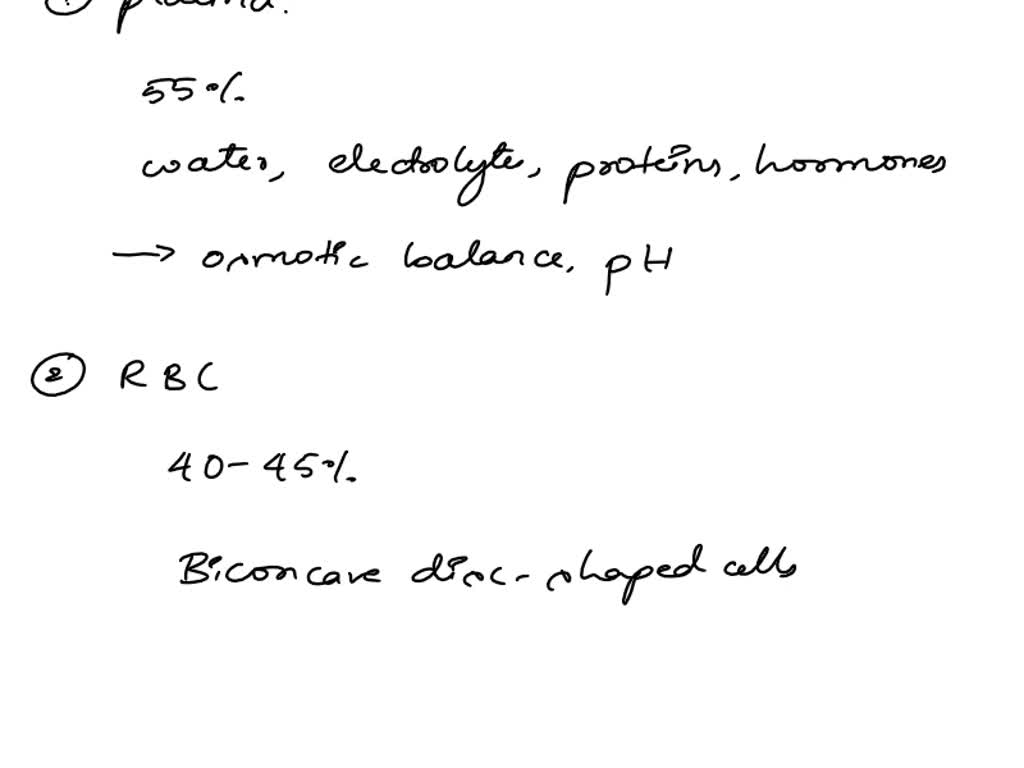 ① plasma.
55%
water, electrolyte, proteins, hormones
→ osmotic balance, pH
② RBC
40-45%
Biconcave disc-shaped cells